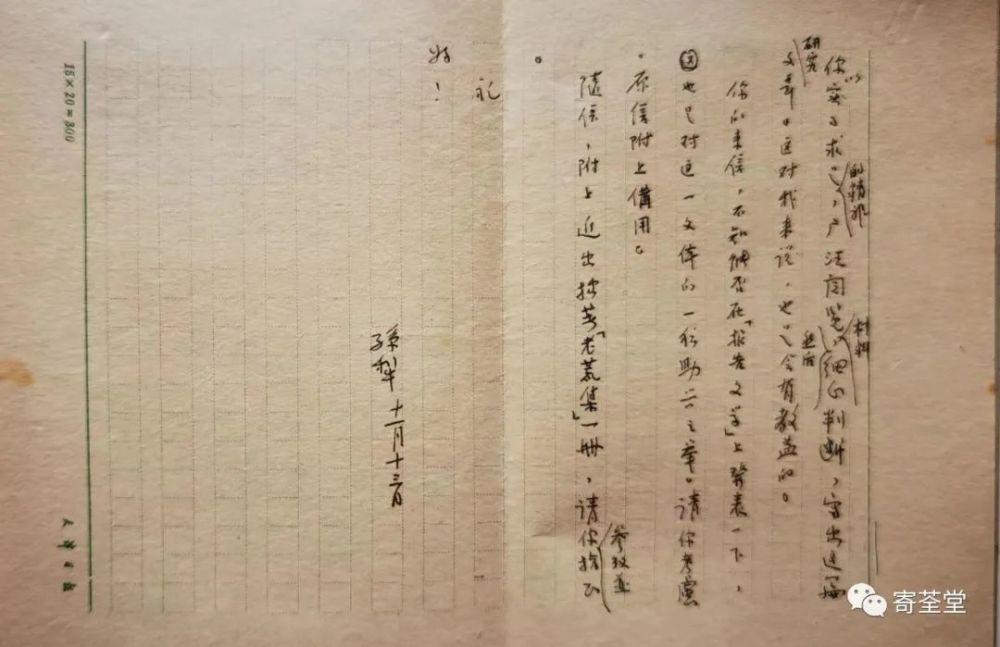 你以实事求是的精神，广泛阅览材料，细心判断，然后写出这篇
研究文章。这对我来说，也是会有教益的。
你的来信，不知能否在「报告文学」上发表一下，
这也是对这一文体的一种助兴之举。请你考虑
。原信附上备用。
随信，附上近出拙著「老荒集」一册，请你参考并指正
。
礼
好！
孫犁 十一月十三日
15×20=300
人民日报
寄荃堂